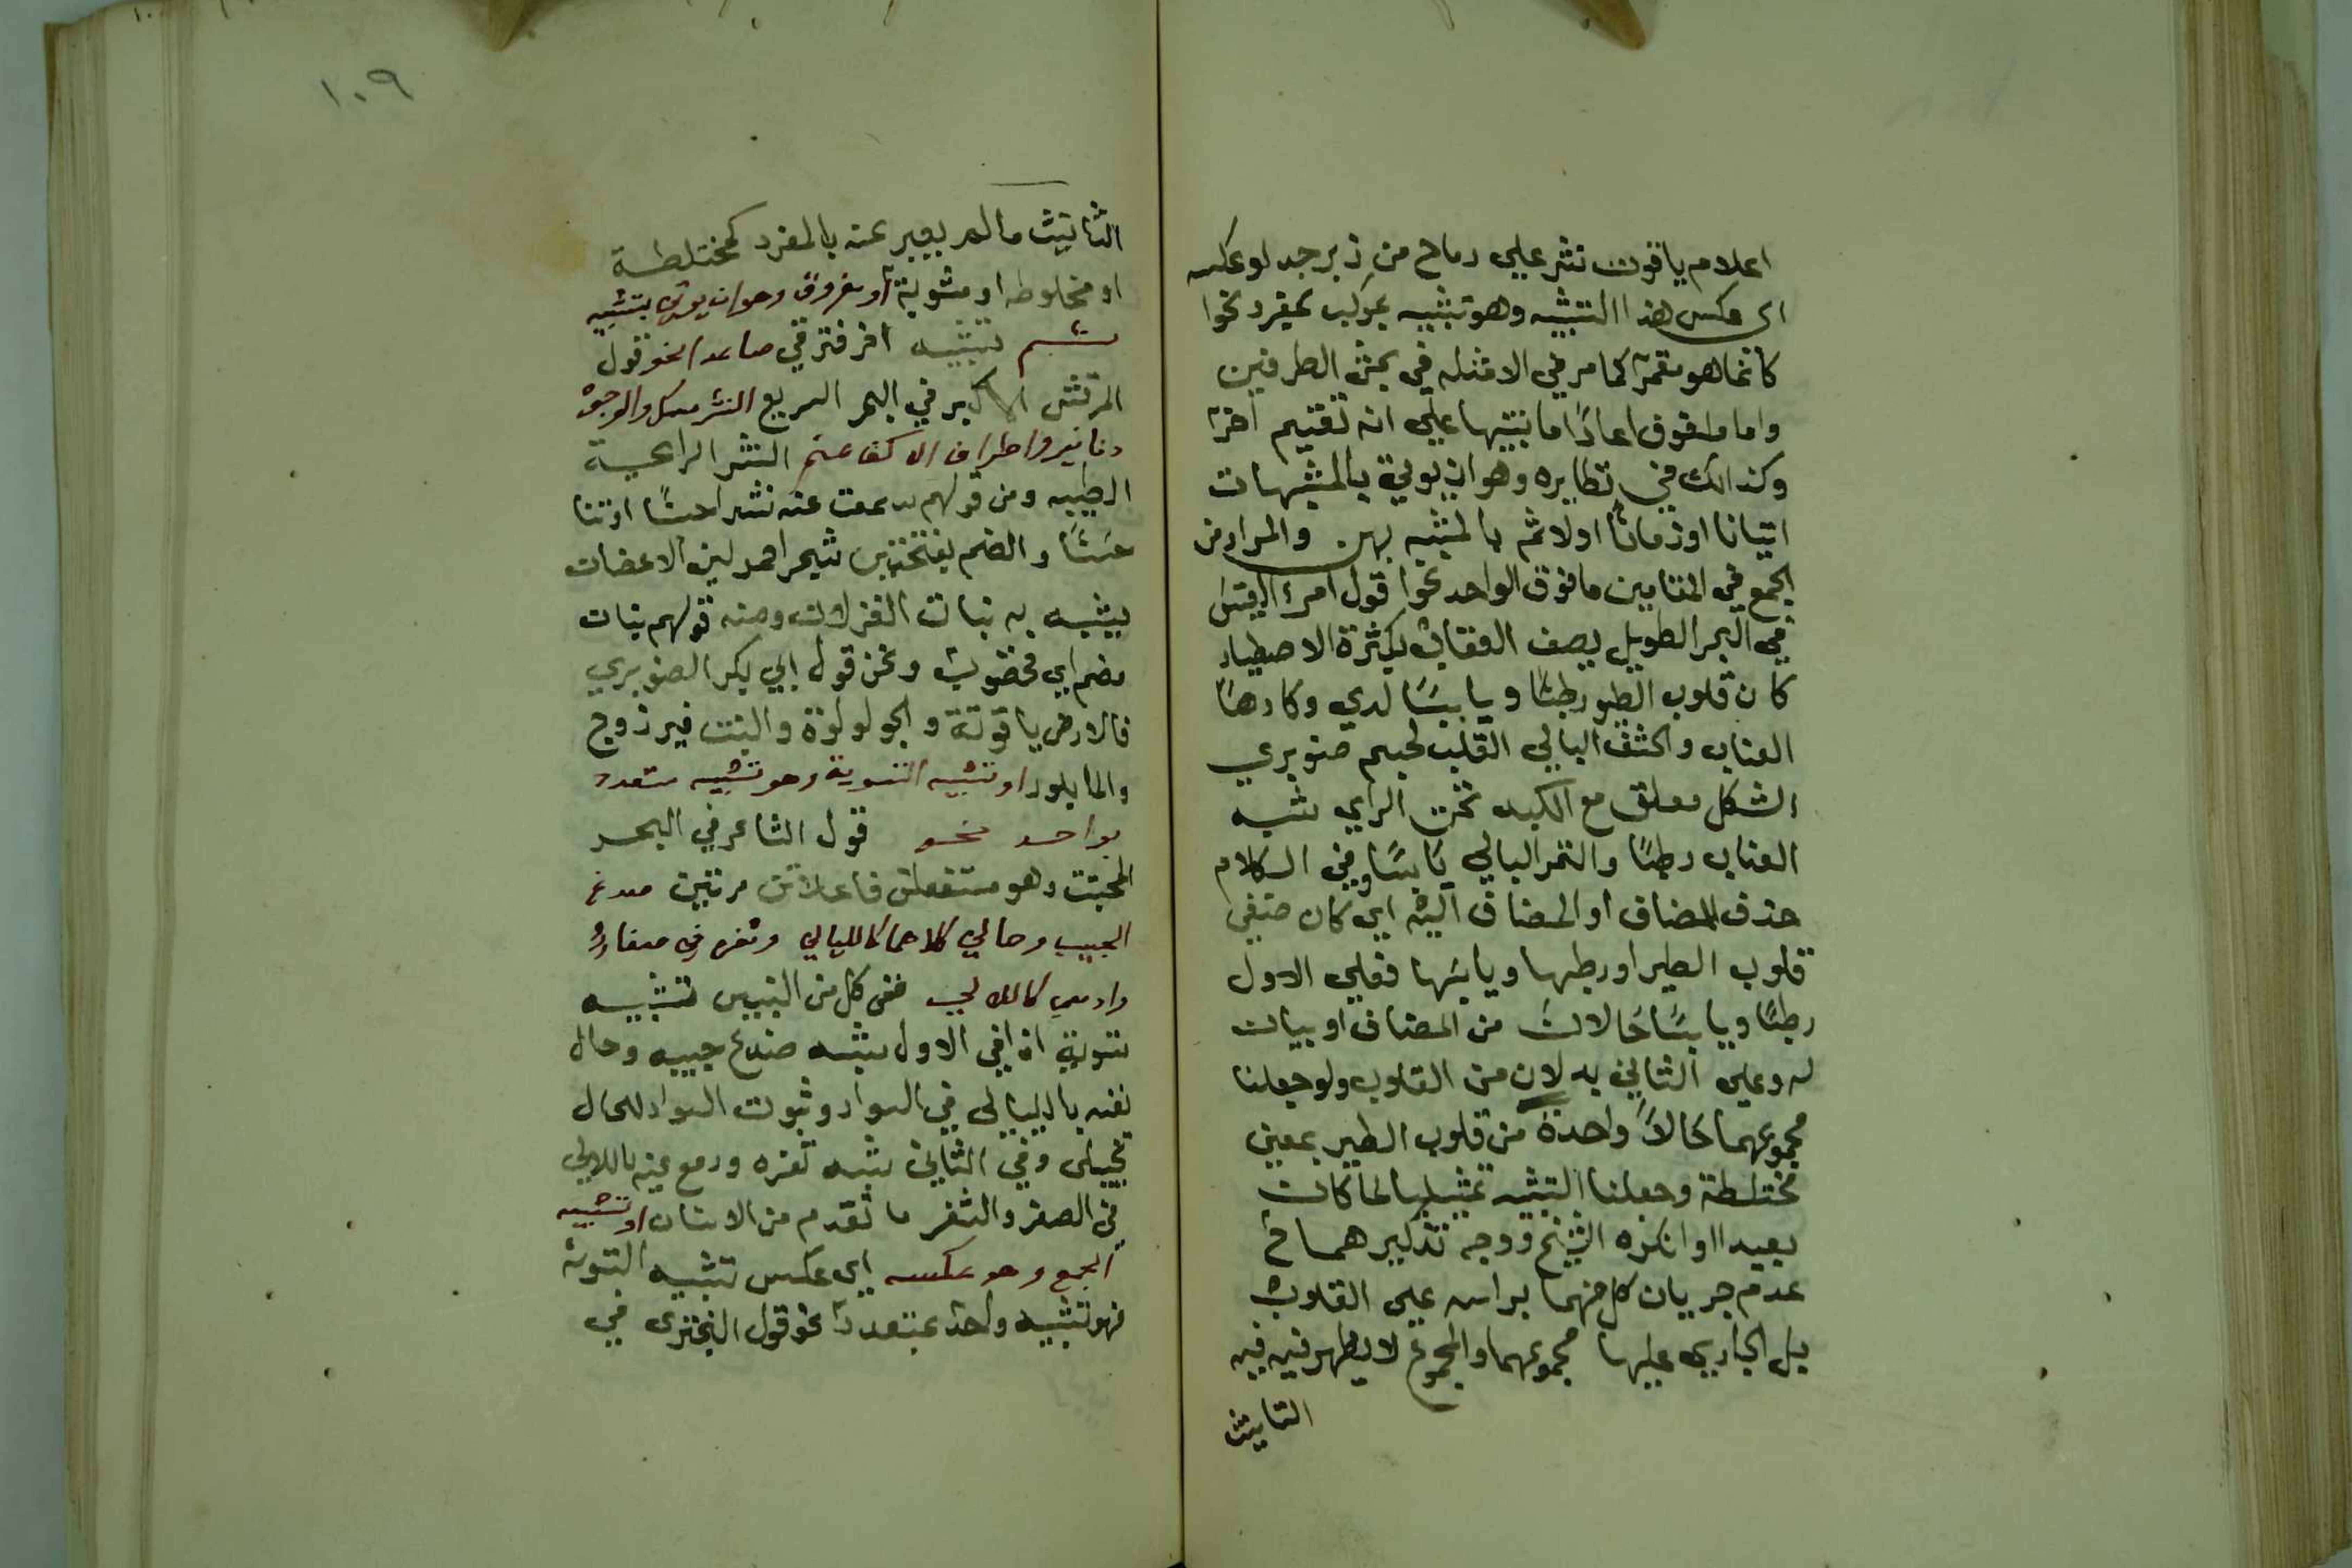 اعلام ياقوت نشر علي رماح من زبرجد او عكسه
اى عكس هذا التشبيه وهو تشبيه مركب بمفرد نحوا
كانما هو مقمر كما مر في الامثله في بحث الطرفين
واما ملفوق اعاد اما تنبيها علي انه تقسيم اخر
وكذالك في نظايره وهو ان يوتي بالمشبهات
اتيانا او زمانا اولا ثم بالمشبه بهن والمراد من
الجمع في المقامين ما فوق الواحد نحوا قول امرء القيس
في البحر الطويل يصف العقاب بكثرة الاصطياد
كان قلوب الطير رطبًا ويابسًا لدي وكارها
العناب والحشف البالي القلب لحم صنوبري
الشكل معلق مع الكبد تحت الراي شبه
العناب رطبًا والتمر البالي يابسًا وفي الكلام
حذف المضاف او المضاف اليه اي كان
قلوب الطير او رطبها ويابسها فعلي الاول
رطبًا ويابسًا حالان من المضاف او بيان
له وعلي الثاني بدلان من القلوب ولو جعلنا
مجموعهما حالاً واحدة من قلوب الطير بمعني
مختلطة وجعلنا التشبيه تمثيليا لما كان
بعيدا او انكره الشيخ ووجه تذكيرهما ح
عدم جريان كل منهما براسه علي القلوب
بل الجاري عليها مجموعهما والمجموع لا يظهر فيه فيه
التانيث
١٠٩
التانيث ما لم يعبر عنه بالمفرد كمختلطة
او مخلوطه او مشوبة او مفروق وهو ان يوتي بتشبيه
ثم تشبيه اخر فترقي صاعدا نحو قول
المرقش الاكبر في البحر السريع النشر مسك والوجوه
دنانير واطراف الاكف عنم النشر الرايحة
الطيبه ومن قولهم سمعت عنه نشرا حسنًا او ثنا
حسنًا والعنم بفتحتين شجر احمر لين الاغصان
يشبه به بنات الغزلان ومنه قولهم بنان
معنم اي مخضوب ونحن قول ابي بكر الصنوبري
فالارض ياقوتة والجو لولوة والنبت فيروزج
والما بلور او تشبيه التسوية وهو تشبيه متعدد
بواحد نحو قول الشاعر في البحر
المجتث وهو مستفعلن فاعلاتن مرتين صدغ
الحبيب وحالي كلاهما كالليالي وثغره في صفاء
وادمعي كاللالي ففي كل من البيتين تشبيه
تسوية اذ في الاول يشبه صدغ حبيبه وحال
نفسه بالليالي في السواد وثبوت السواد للحال
تخييلي وفي الثاني شبه ثغره ودمع عينه باللالي
في الصفر والثغر ما تقدم من الاسنان او تشبيه
الجمع وهو عكسه اي عكس تشبيه التسوية
فهو تشبيه واحد بمتعدد نحو قول البحتري في